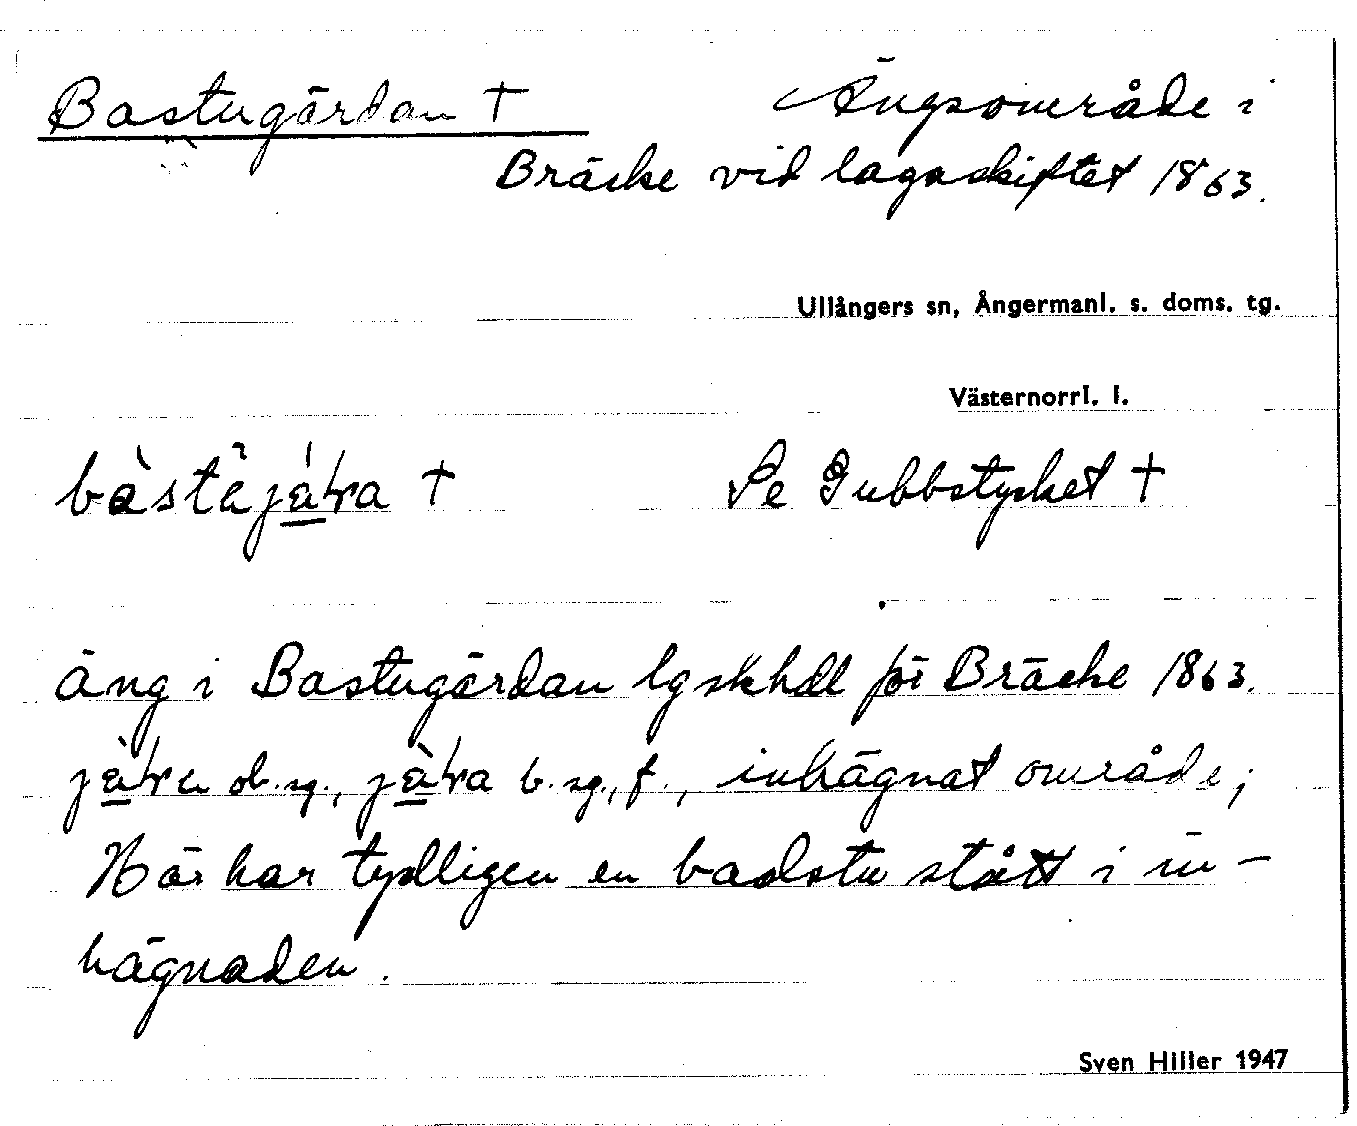 Bastugärdan † Ängsområde i
Bräcke vid lagaskiftet 1863.
Ullångers sn, Ångermanl. s. doms. tg.
Västernorrl. l.
† Se Gubbstycket †
äng i Bastugärdan lgskhdl för Bräcke 1863.
ob. sg., b. sg., f., inhägnat område;
Här har tydligen en badstu stått i in-
hägnaden.
Sven Hiller 1947